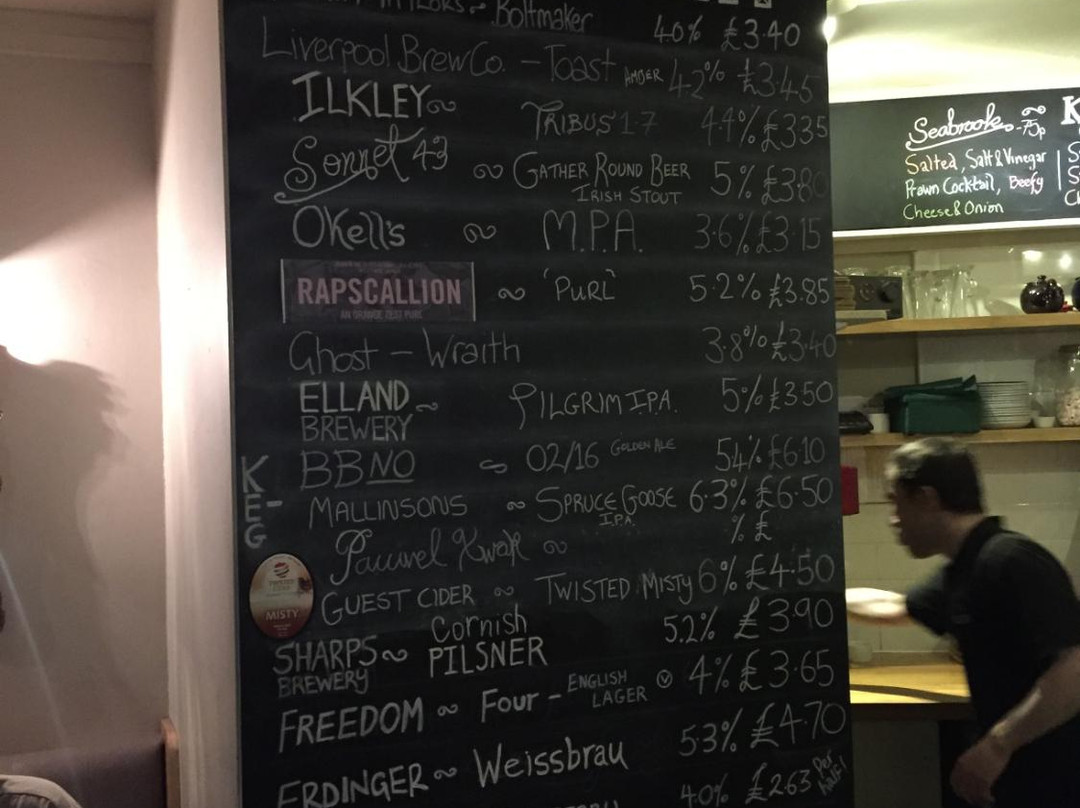 Boltmaker 4.0% £3.40
Liverpool Brew Co. – Toast AMBER 4.2% £3.45
ILKLEY ~ TRIBUS 1-7 4.4% £3.35
Sonnet 43 ~ GATHER ROUND BEER 5% £3.80
IRISH STOUT
OKell's ~ M.P.A. 3.6% £3.15
RAPSCALLION ~ 'PURL' 5.2% £3.85
AN ORANGE ZEST PURL
Ghost – Wraith 3.8% £3.40
ELLAND ~ PILGRIM I.P.A. 5% £3.50
BREWERY
KEG
BBNO ~ 02/16 GOLDEN ALE 5.4% £6.10
MALLINSONS ~ SPRUCE GOOSE 6.3% £6.50
I.P.A.
Pauwel Kwak ~ % £
MISTY
GUEST CIDER ~ TWISTED MISTY 6% £4.50
SHARPS ~ Cornish 5.2% £3.90
BREWERY PILSNER
FREEDOM ~ Four – ENGLISH LAGER V 4% £3.65
ERDINGER ~ Weissbrau 5.3% £4.70
4.0% £2.63 Per HALF!
Seabrooks ~ 75p
Salted, Salt & Vinegar
Prawn Cocktail, Beefy
Cheese & Onion